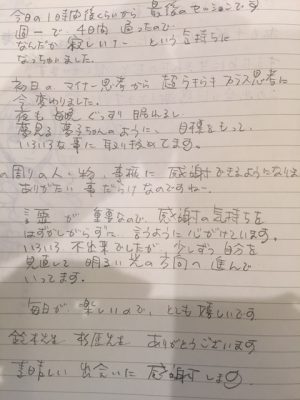 今日の1時間後くらいから 最後のセッションです
週一で 4日間 通ったので
なんだか 寂しいなー という気持ちに
なっちゃいました。
初日の マイナー思考から 超うきうき プラス思考に
今 変わりました。
夜も 毎晩 ぐっすり 眠れるし
夢見る 夢子ちゃんのように、目標をもって
いろいろな事に 取り組めてます。
の周りの人・物・事柄に 感謝できるようになりま
ありがたい 事だらけなのですねー。
言霊が 重要なので、感謝の気持ちを
はずかしがらずに 言うように 心がけています。
いろいろ 不出来でしたが、少しずつ 自分を
見直して 明るい光の方向へ 進んで
いってます。
毎日が 楽しいので、とても 嬉しいです
鈴木先生 杉尾先生 ありがとうございます
素晴しい 出会いに 感謝します。